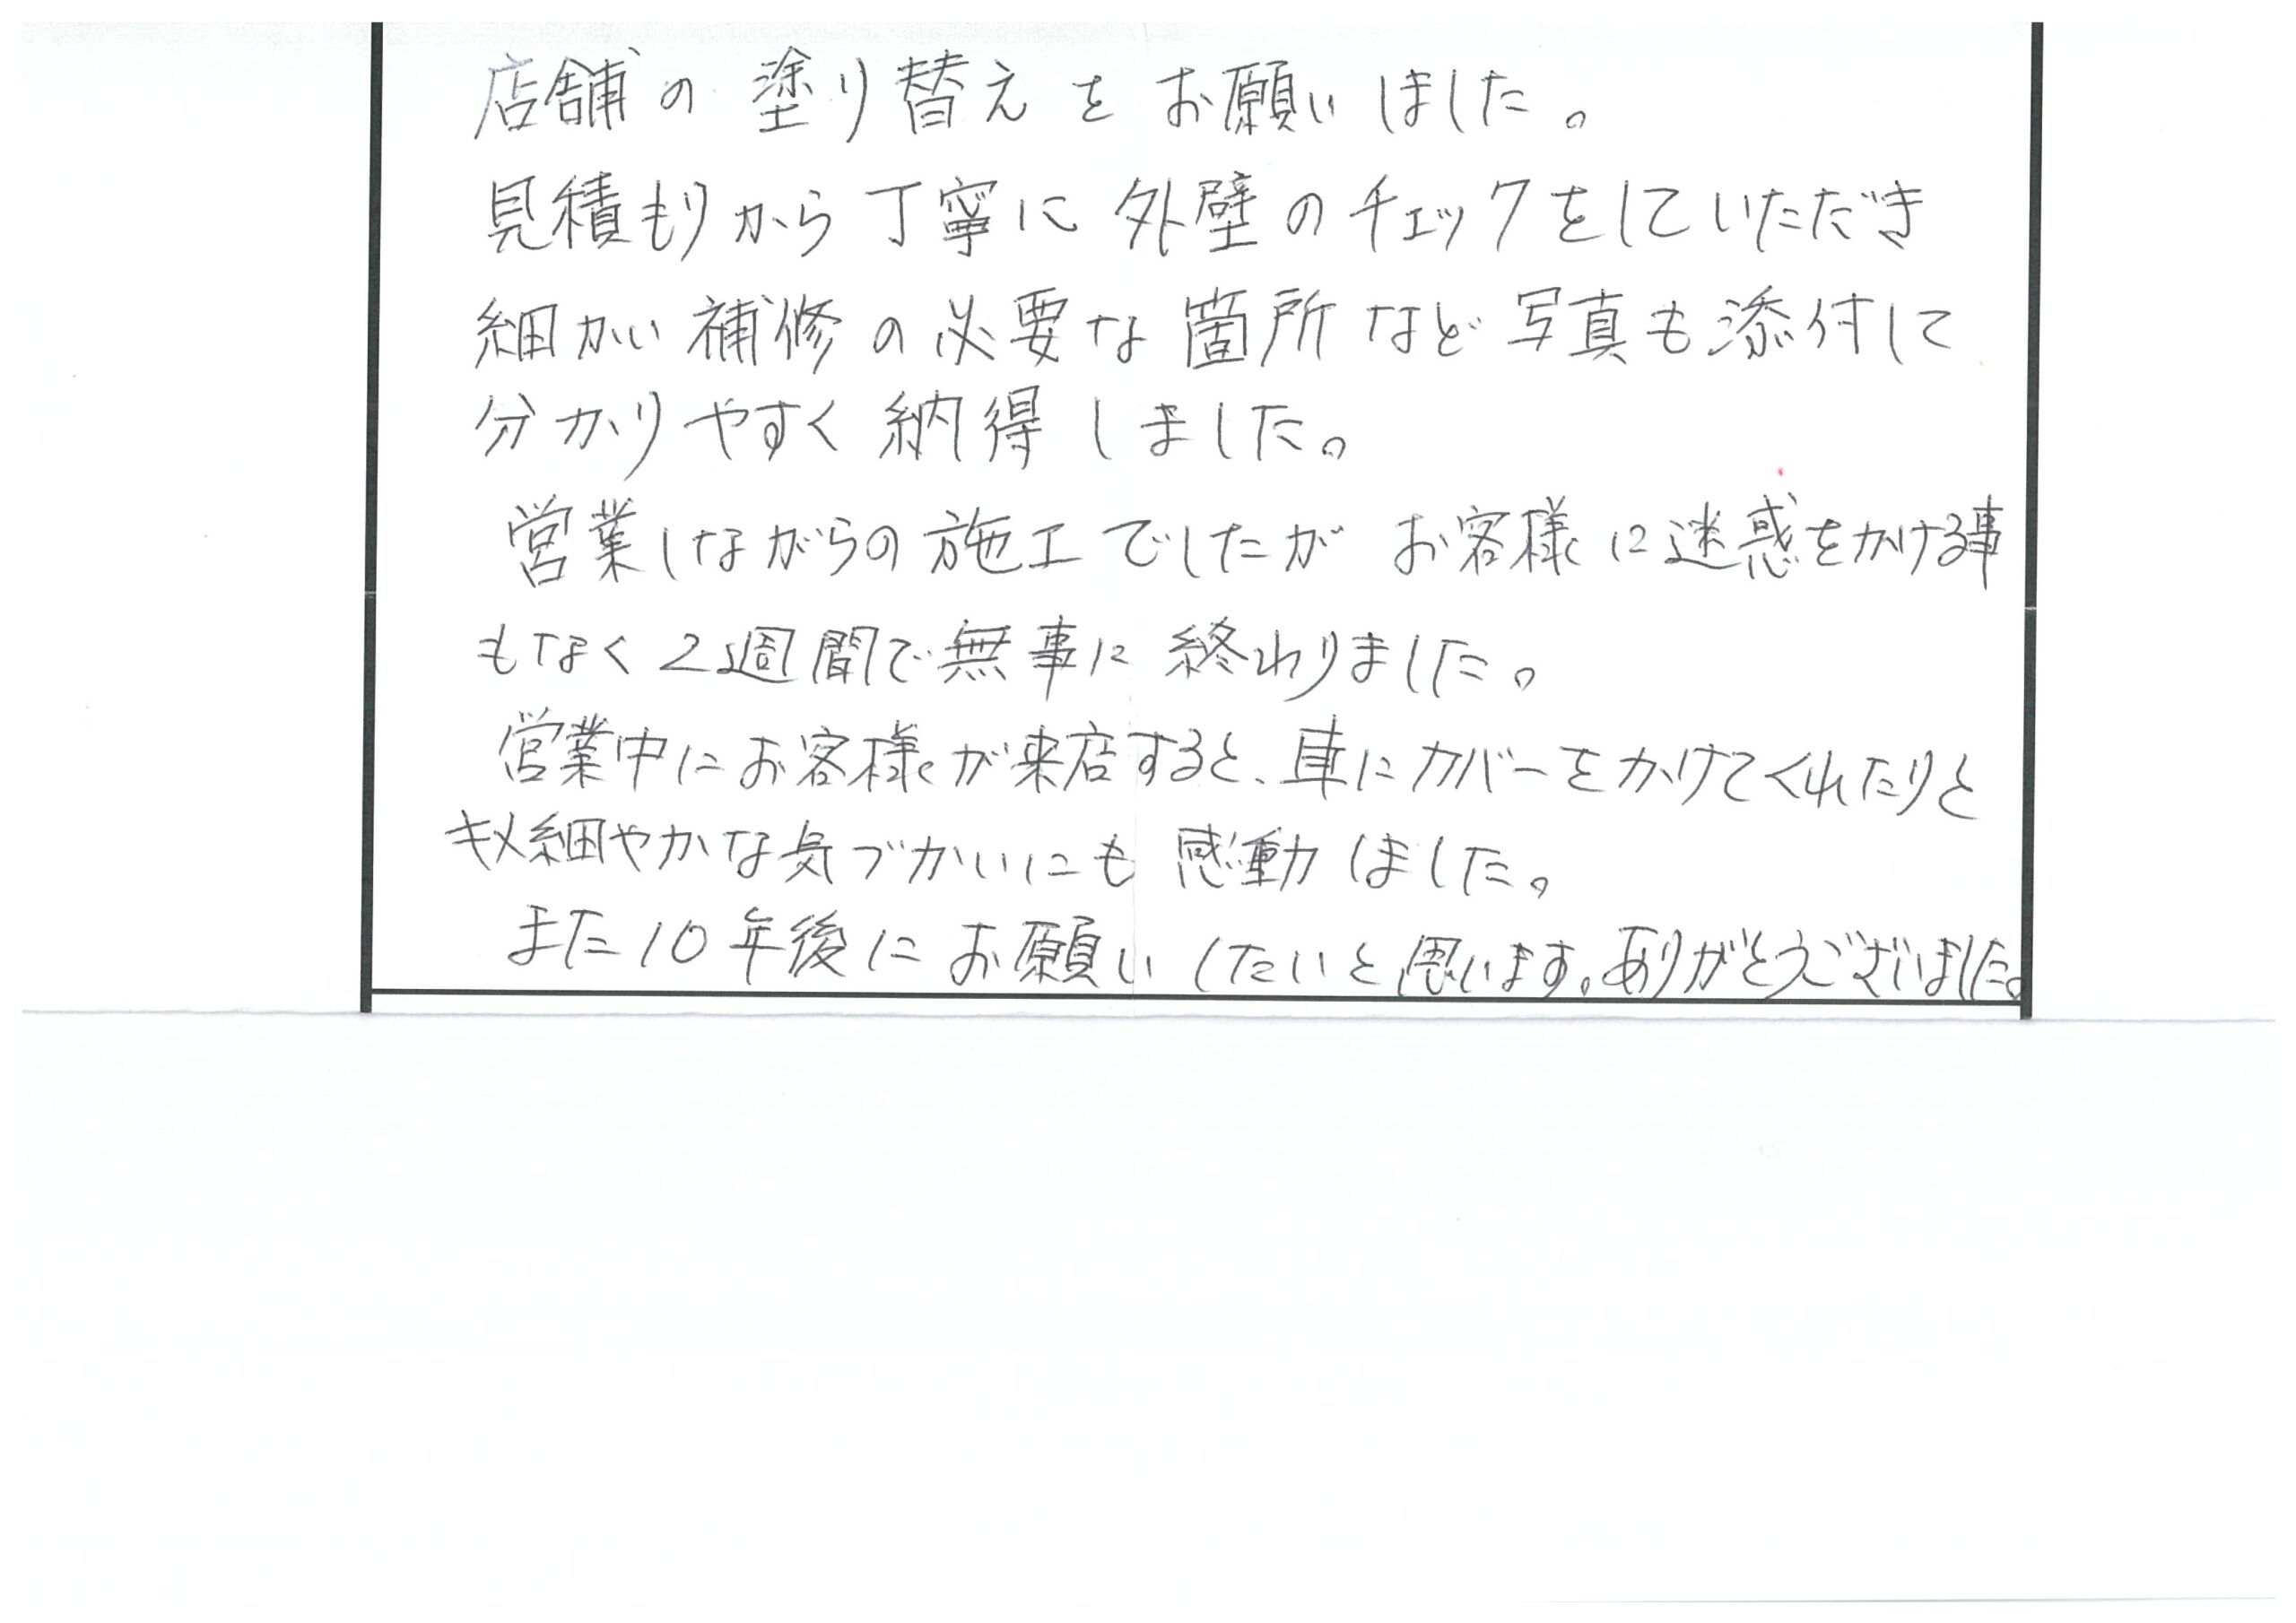 店舗の塗り替えをお願いしました。
見積もりから丁寧に外壁のチェックをしていただき
細かい補修の必要な箇所など写真も添付して
分かりやすく納得しました。
営業しながらの施工でしたがお客様に迷惑をかける事
もなく2週間で無事に終わりました。
営業中にお客様が来店すると、車にカバーをかけてくれたりと
キメ細やかな気づかいにも感動しました。
また10年後にお願いしたいと思います。ありがとうございました。